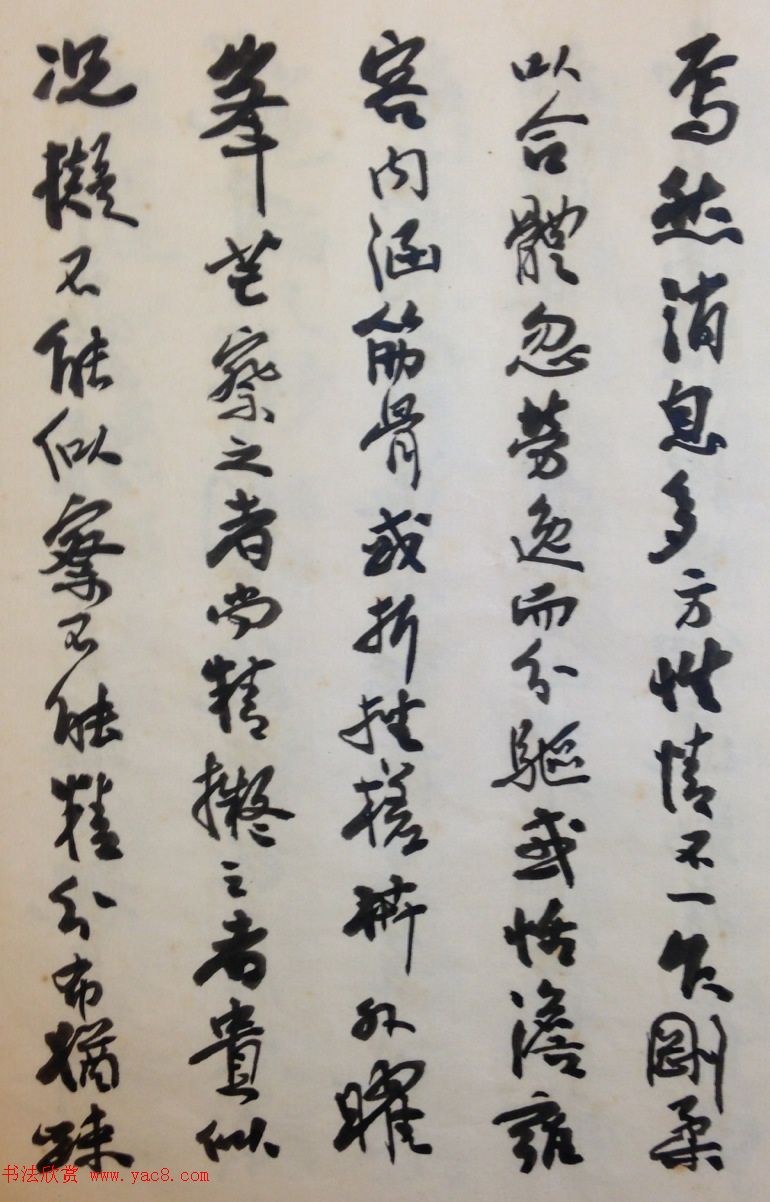 焉然消息多方性情不一乍剛柔
以合體忽勞逸而分驅或恬澹雍
容内涵筋骨或折挫槎枿外曜
峯芒察之者尚精擬之者貴似
况擬不能似察不能精分布猶疎
书法欣赏 www.yac8.com